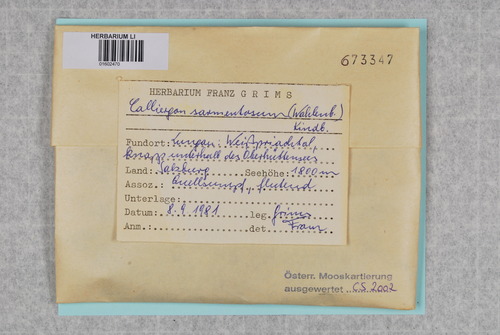 HERBARIUM LI
673347
HERBARIUM FRANZ GRIMS
Calliergon sarmentosum (Wahlenb.)
Kindb.
Fundort: Lungau: Weißpriachtal,
knapp unterhalb des Oberhüttensees
Land: Salzburg Seehöhe: 1800 m
Assoz.: Quellsumpf, flutend
Unterlage:
Datum: 8.9.1981 leg. Grims
Anm.: det. Franz
Österr. Mooskartierung
ausgewertet CS 2002